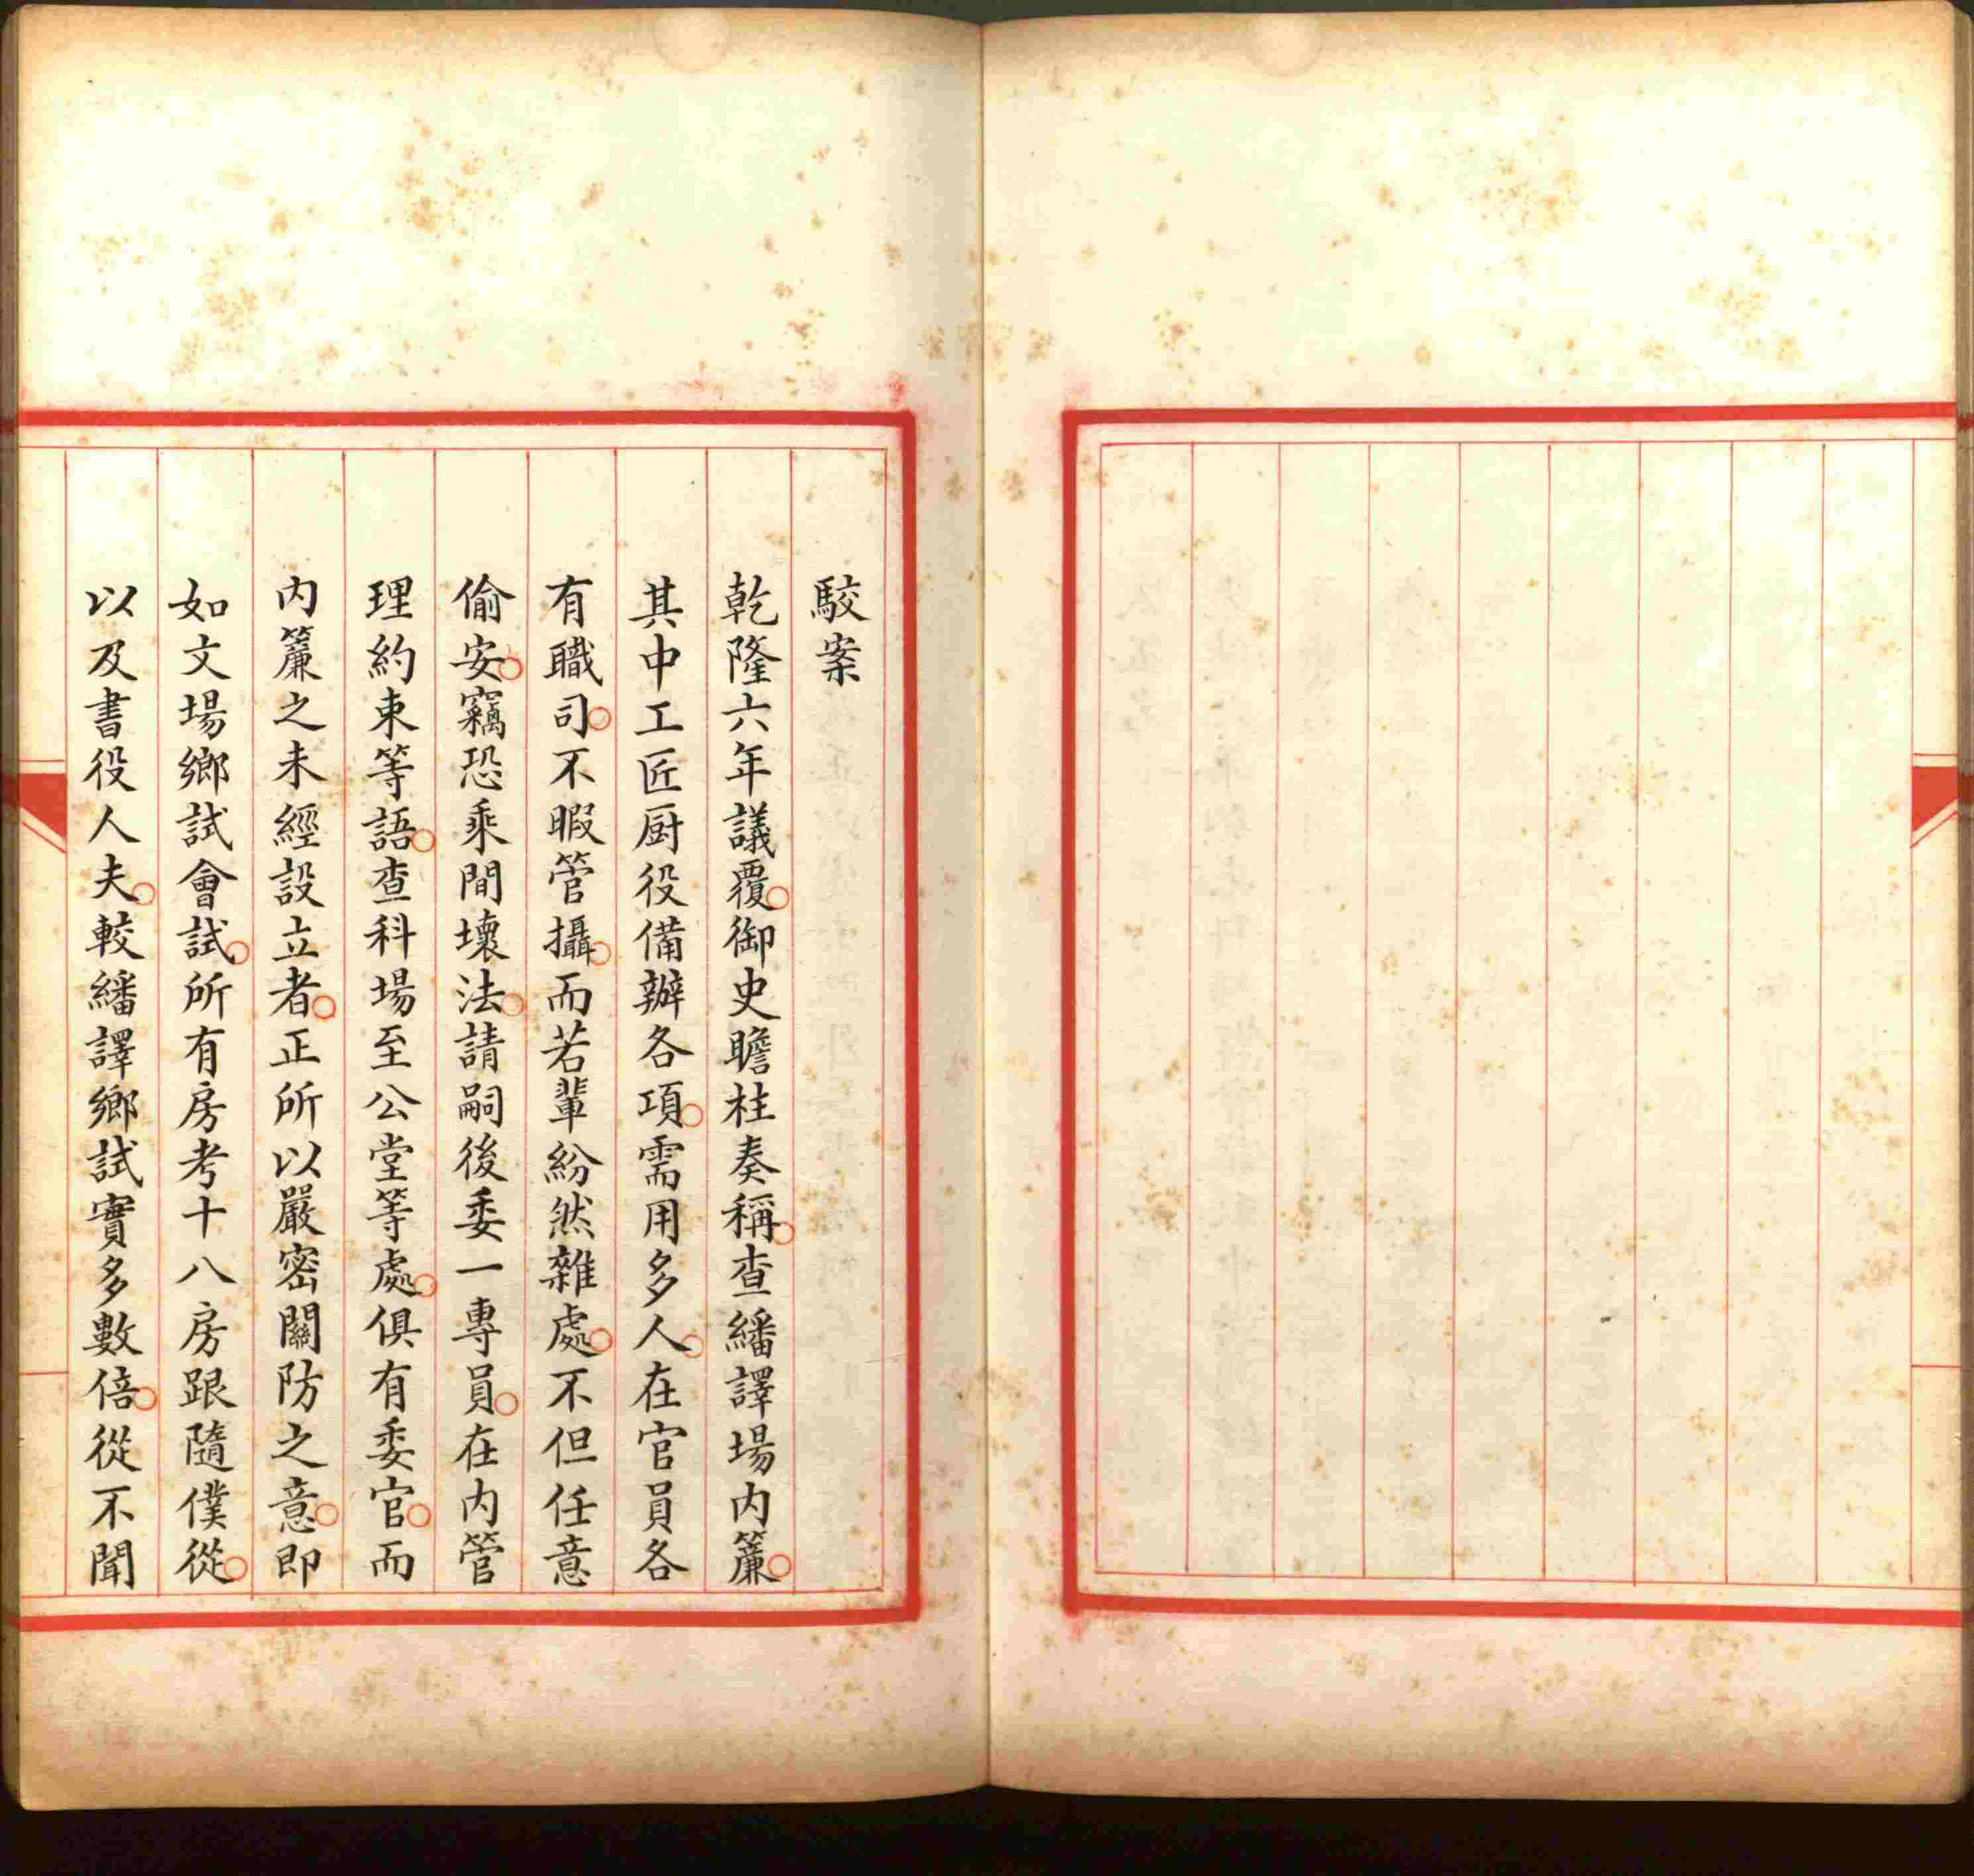 駮案
乾隆六年議覆○御史瞻柱奏稱○查繙譯場内簾○
其中工匠厨役備辦各項○需用多人○在官員各
有職司○不暇管攝○而若輩紛然雜處○不但任意
偷安○竊恐乘間壞法○請嗣後委一專員○在内管
理約束等語○查科場至公堂等處○俱有委官○而
内簾之未經設立者○正所以嚴密關防之意○即
如文場鄉試會試○所有房考十八房跟隨僕從○
以及書役人夫○較繙譯鄉試實多數倍○從不聞